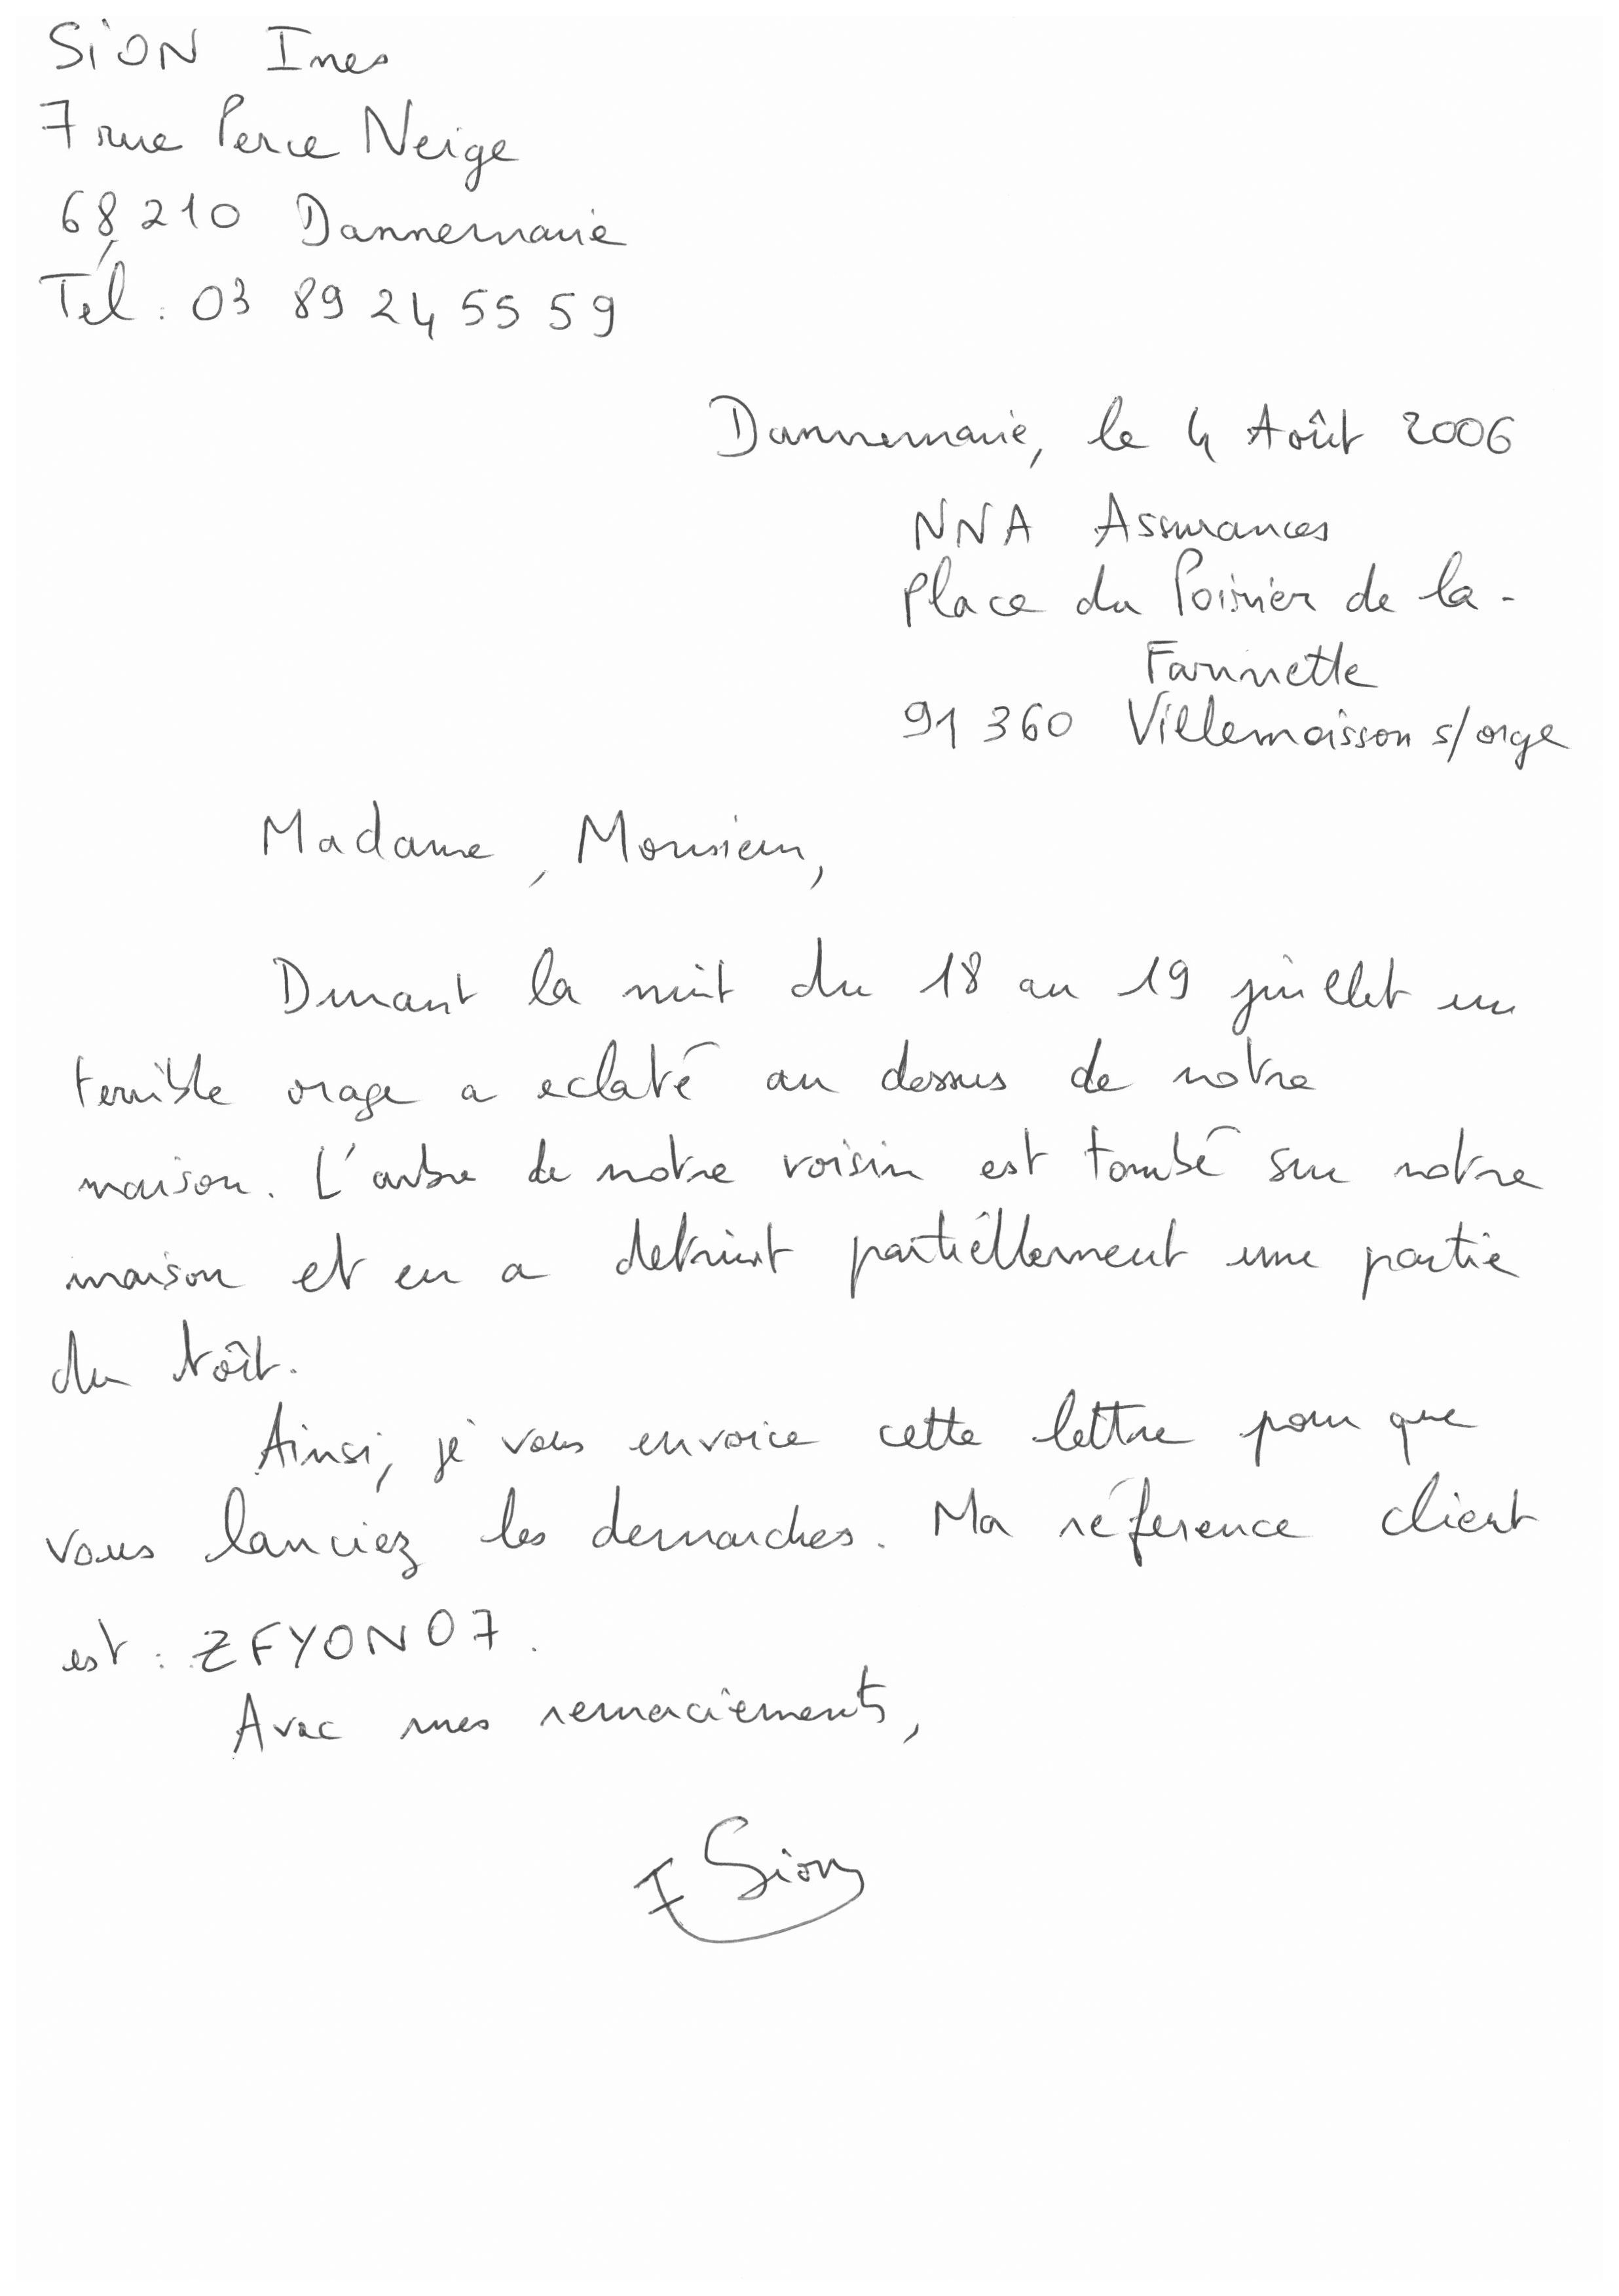 SION Ines
7 rue Perce Neige
68210 Dannemarie
Tél : 03 89 24 55 59
Dannemarie, le 4 Août 2006
NNA Assurances
Place du Poirier de la-
Farinette
91 360 Villemoisson s/orge
Madame, Monsieur,
Durant la nuit du 18 au 19 juillet un
terrible orage a eclaté au dessus de notre
maison. L'arbre de notre voisin est tombé sur notre
maison et en a detruit partiellement une partie
du toît.
Ainsi, je vous envoie cette lettre pour que
vous lanciez les demarches. Ma réference client
est : ZFYON07.
Avec mes remerciements,
I Sion